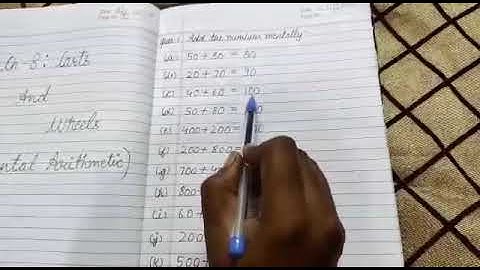 Ch-8: Carts
And
Wheels
ental Arithmetic)
Ques 1 Add the numbers mentally
(a) 50+30 = 80
(b) 20+70 = 90
(c) 40+60 = 100
(d) 50+80 =
(e) 400+200=
(f) 200+800=
(g) 700+
(h) 800
(i) 60+
(j) 200
(k) 500+